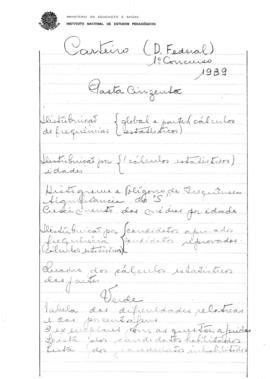 MINISTÉRIO DA EDUCAÇÃO E SAÚDE
INSTITUTO NACIONAL DE ESTUDOS PEDAGÓGICOS
Carteiro (D. Federal)
1º Concurso
1939
Pasta Cinzenta
Distribuição { global e partes { cálculos
de frequências { estatísticos)
Distribuição por { (cálculos estatísticos)
idades
Histograma e Polígono de frequências
Significância do "S"
Crescimento das médias por idade
Distribuição por { candidatos aprovados
frequência { candidatos reprovados
cálculos estatísticos
Quadro dos cálculos estatísticos
das partes
Verde
Tabela das dificuldades relativas
e das porcentagens
exemplares com as questões
Lista dos candidatos habilitados
Lista dos candidatos inhabilitados